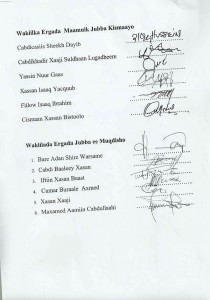 Wakiilka Ergada Maamulk Jubba Kismaayo
Cabdicasiis Sheekh Dayib
Cabdikhadir Xaaji Suldhaan Lugadheere
Yassin Nuur Gass
Xassan Isaaq Yacquub
Fiilow Isaaq Ibrahim
Cismaan Xassan Bistoolo
Wakilada Ergada Jubba ee Muqdisho
1. Bare Adan Shire Warsame
2. Cabdi Baaleey Xasan
3. Iftiin Xasan Basat
4. Cumar Buraale Axmed
5. Xasan Xaaji
6. Maxamed Aamiin Cabdullaahi